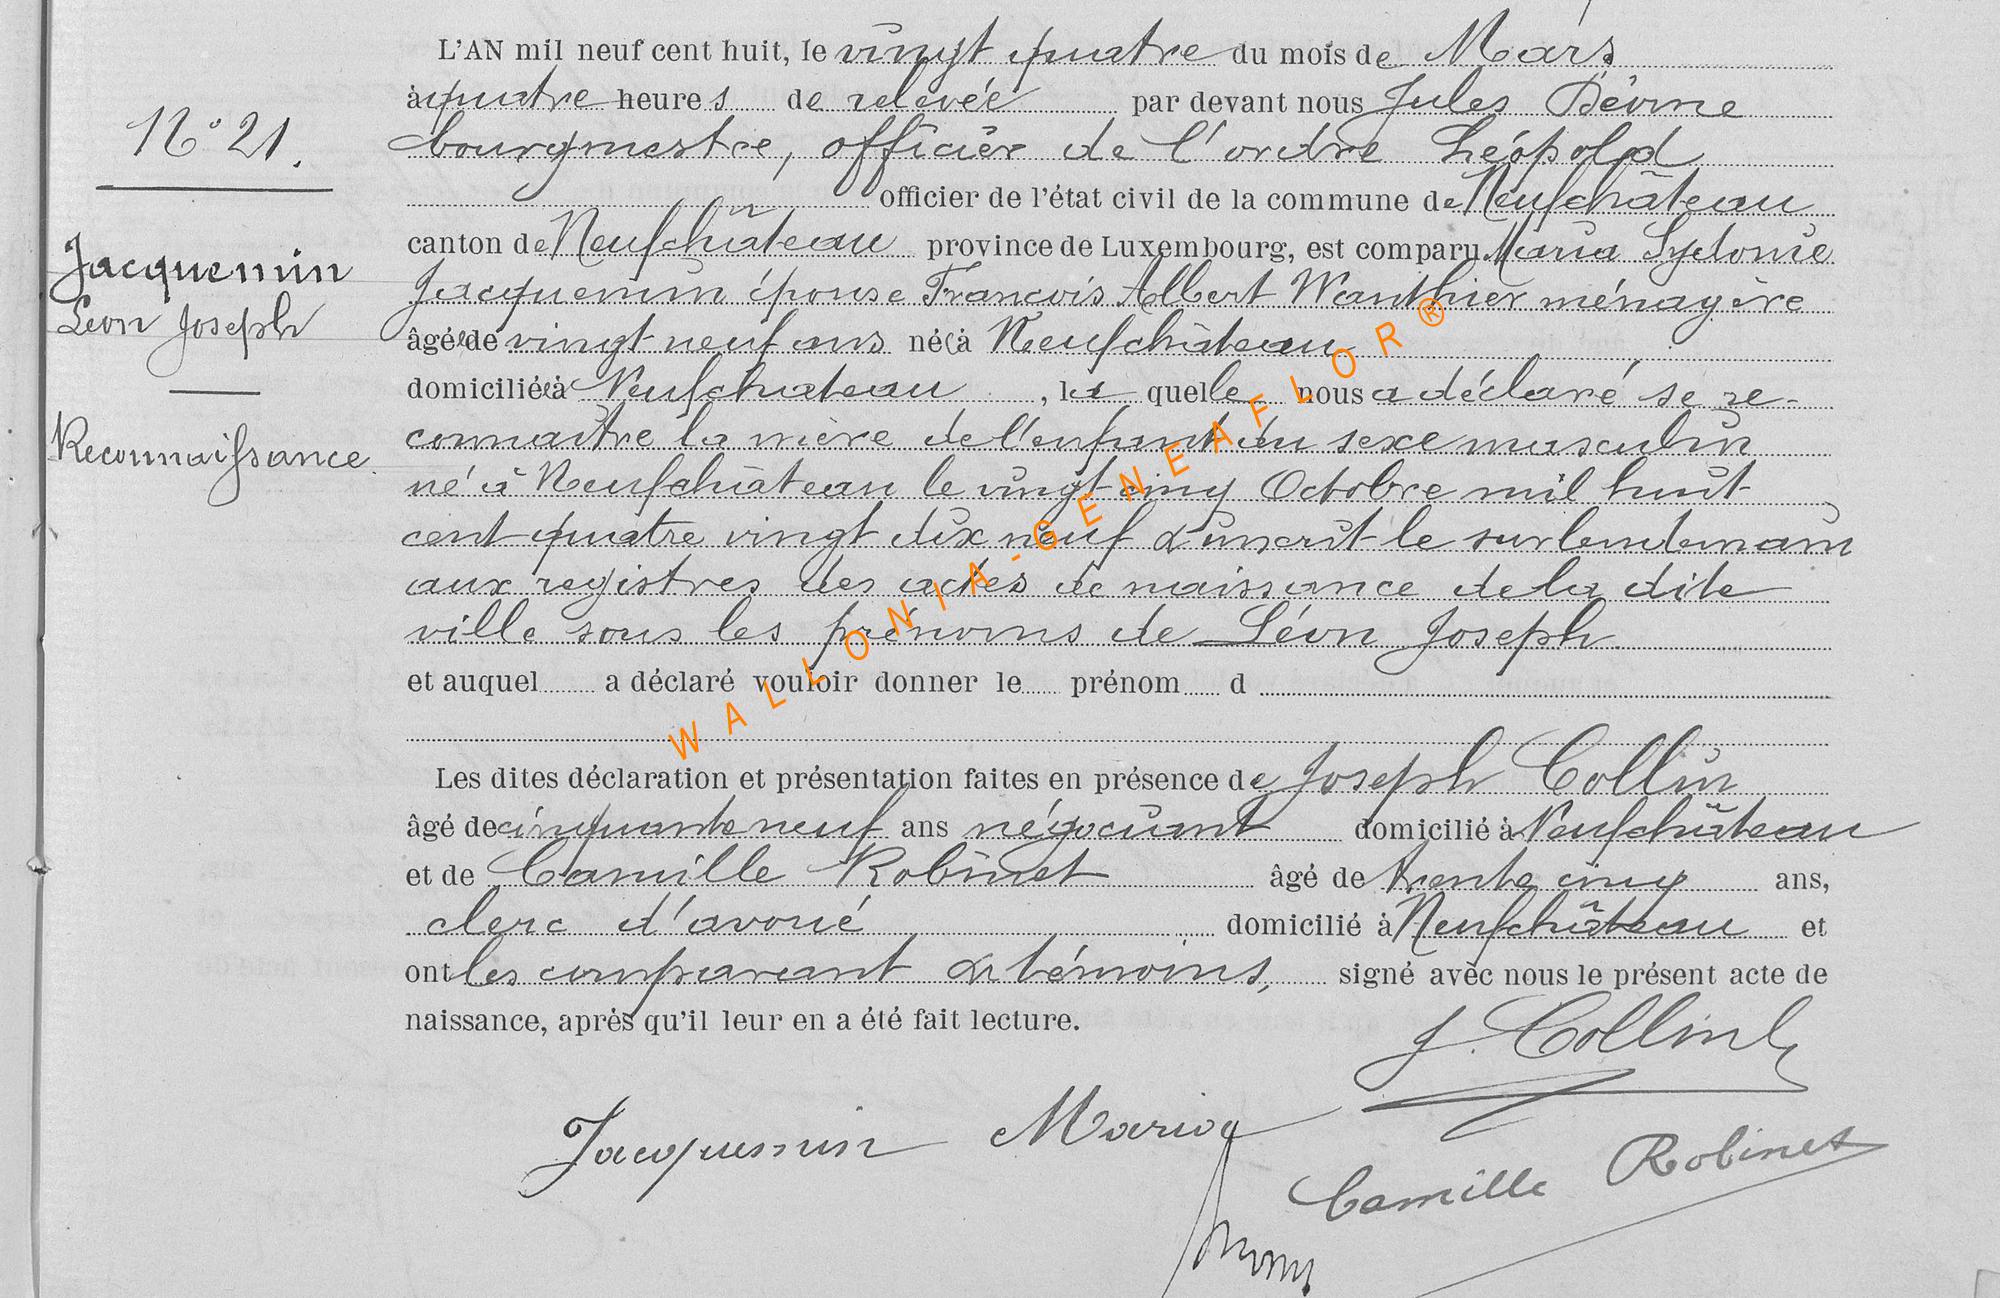 L'AN mil neuf cent huit, le vingt quatre du mois de Mars
à quatre heures de relevée par devant nous Jules
N° 21.
bourgmestre, officier de l'ordre Léopold
officier de l'état civil de la commune de Neufchâteau
canton de Neufchâteau province de Luxembourg, est comparu Maria Sydonie
Jacquemin
Léon Joseph
Jacquemin épouse François Albert Wanthier ménagère
âgée de vingt neuf ans née à Neufchâteau
domiciliée à Neufchateau, la quelle nous a déclaré se re-
Reconnaissance
connaître la mère de l'enfant du sexe masculin
né à Neufchâteau le vingt cinq Octobre mil huit
cent quatre vingt dix neuf & inscrit le surlendemain
aux registres des actes de naissance de la dite
ville sous les prénoms de Léon Joseph
et auquel a déclaré vouloir donner le prénom d
Les dites déclaration et présentation faites en présence de Joseph Collin
âgé de cinquante neuf ans négociant domicilié à Neufchâteau
et de Camille Robinet âgé de trente cinq ans,
clerc d'avoué domicilié à Neufchâteau et
ont les comparant & témoins, signé avec nous le présent acte de
naissance, après qu'il leur en a été fait lecture.
J. Collin
Jacquemin Maria
Camille Robinet
WALLONIA-GENEAFLOR®